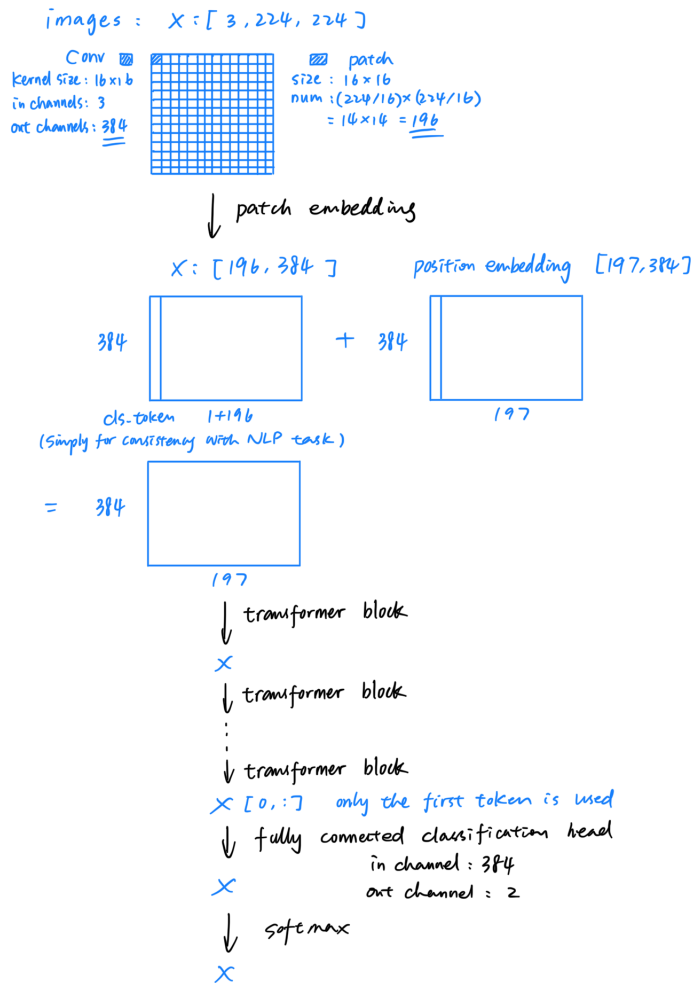 images : X : [ 3, 224, 224 ]
Conv
kernel size : 16×16
in channels : 3
out channels : 384
patch
size : 16×16
num : (224/16)×(224/16)
= 14×14 = 196
patch embedding
X : [ 196, 384 ]
position embedding [197, 384]
384
+ 384
cls-token 1+196
197
(Simply for consistency with NLP task)
= 384
197
transformer block
X
transformer block
transformer block
X [ 0, : ] only the first token is used
fully connected classification head
in channel : 384
out channel : 2
X
softmax
X